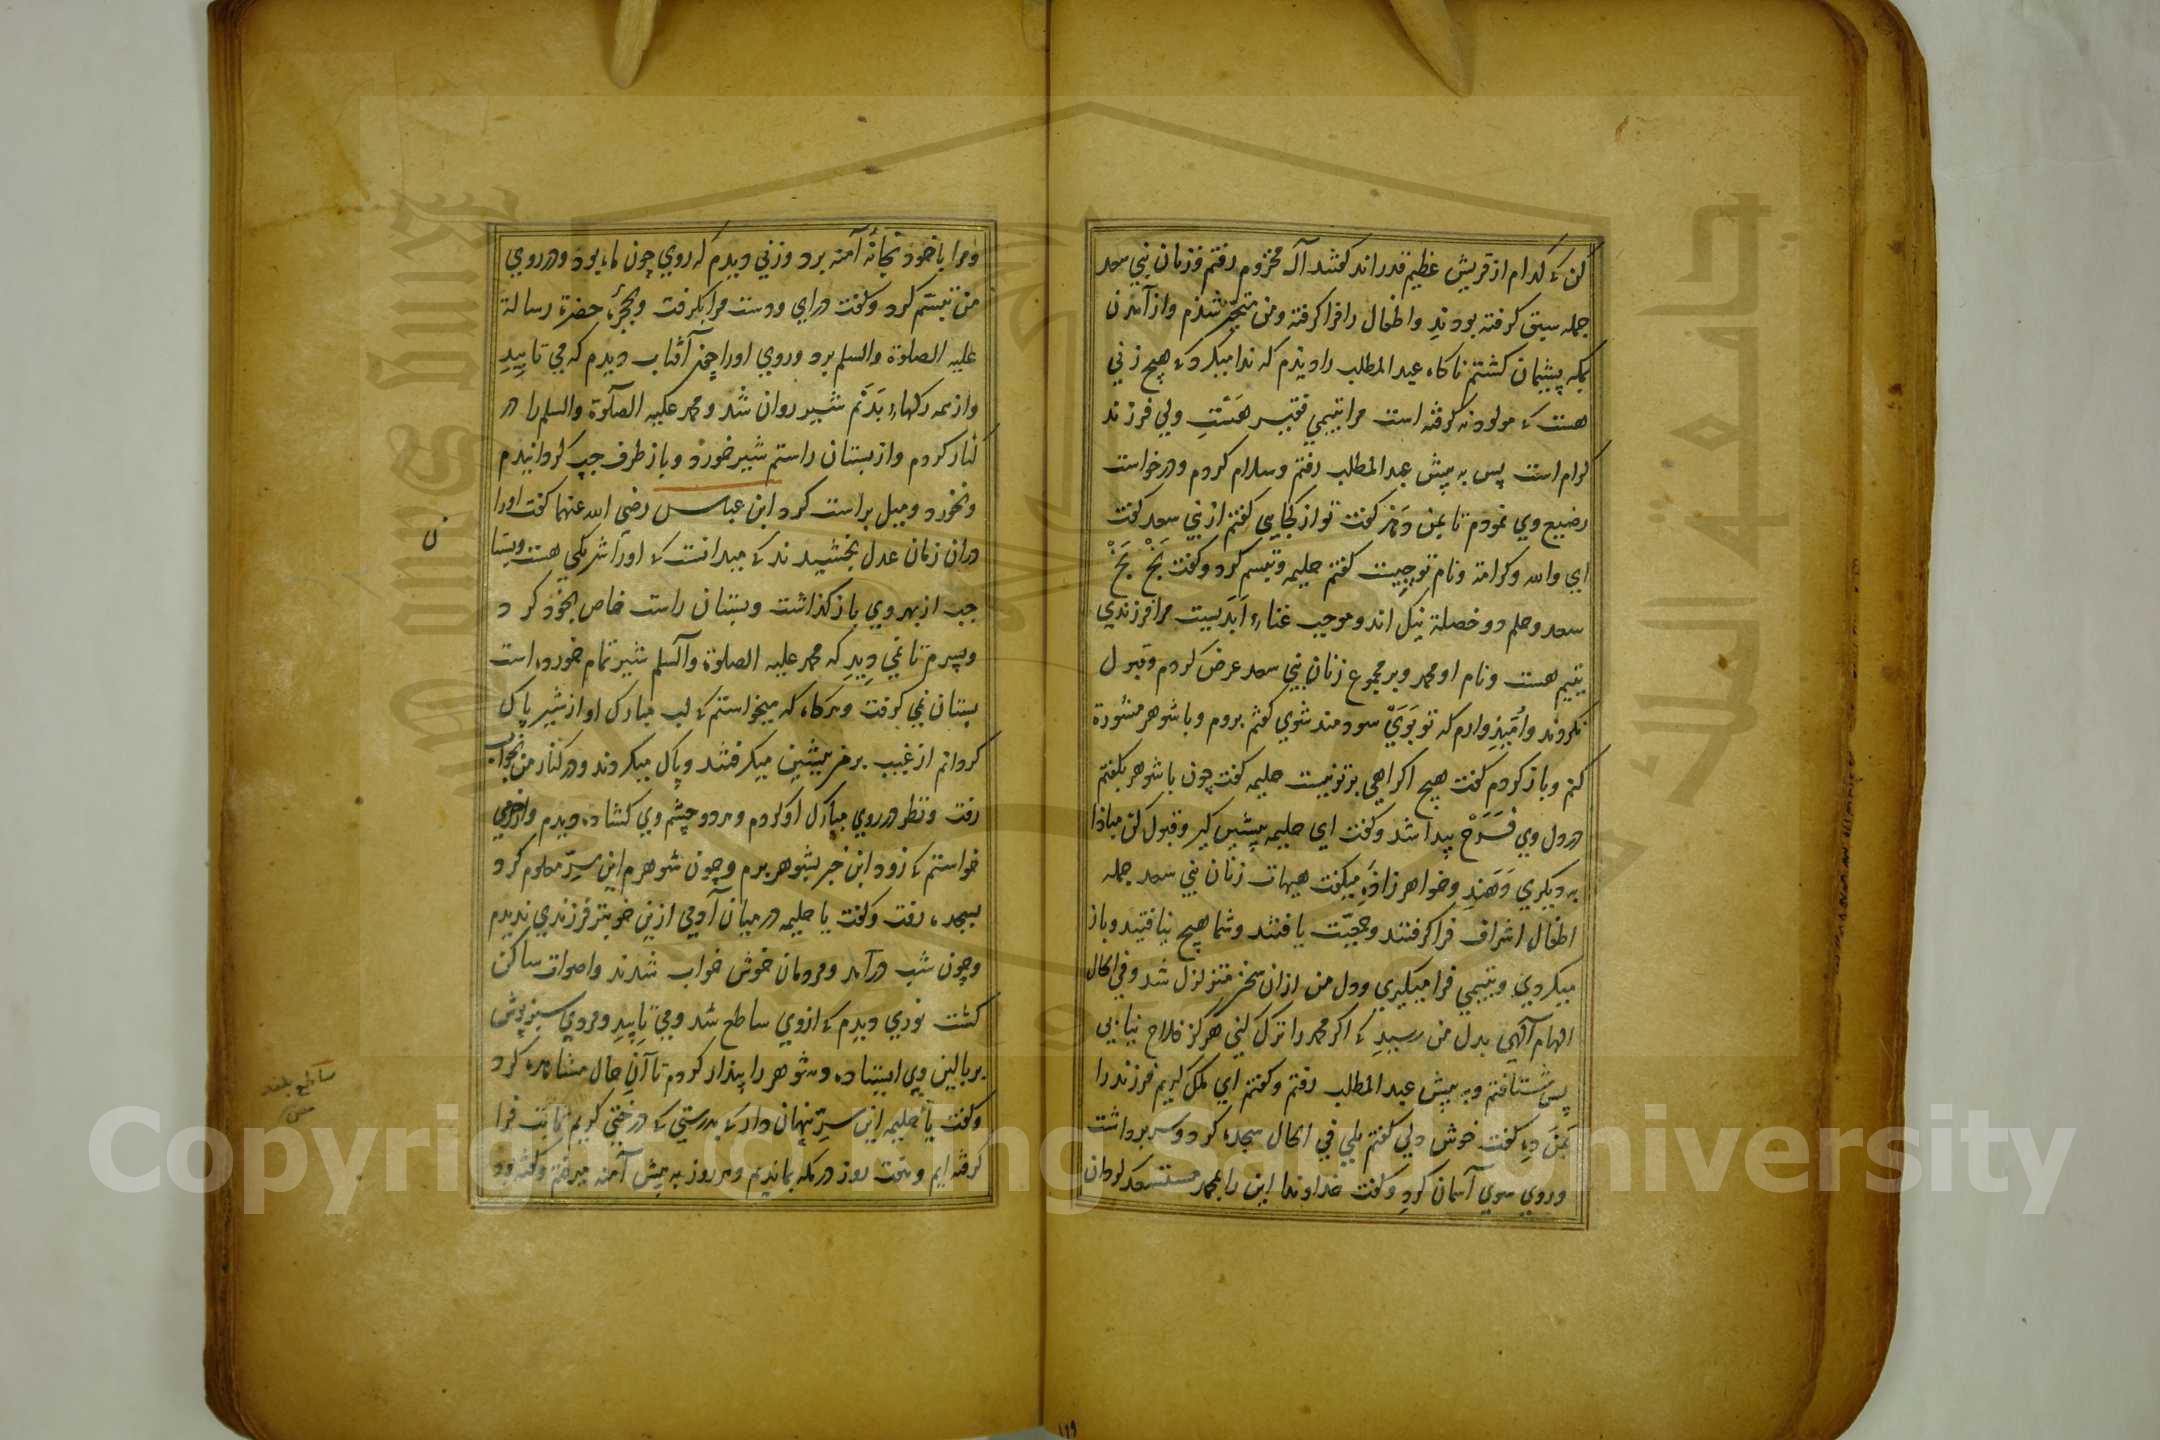 کن که کدام از قریش عظیم قدراند کفتند آل مخزوم رفتم و زنان بنی سعد
جمله سبق کرفته بودند و اطفال را فرا کرفته و من متحیر شدم و از آمدن
بمکه پشیمان کشتم ناکاه عبد المطلب را دیدم که ندا میکرد که هیچ زنی
هست که مولود نه کرفته است مرا یتیمی فقیر هست ولی فرزند
کرام است پس به پیش عبد المطلب رفتم و سلام کردم و درخواست
رضیع وی نمودم تا بمن دهد کفت تو از کجایی کفتم از بنی سعد کفت
ای والله و کرامة و نام تو چیست کفتم حلیمه و تبسم کرد و کفت بَخْ بَخْ
سعد و حلم دو خصلة نیک اند و موجب غناء ابدیست مرا فرزندی
یتیم هست و نام او محمد و بر مجموع زنان بنی سعد عرض کردم و قبول
نکردند و امید وارم که تو بوی سودمند شوی کفتم بروم و با شوهر مشورة
کنم و باز کردم کفت هیچ اکراهی بر تو نیست حلیمه کفت چون با شوهر بکفتم
در دل وی فَرَحْ پیدا شد و کفت ای حلیمه پیشین کیر و قبول کن مبادا
به دیکری دهند و خواهر زاده میکفت هیهات زنان بنی سعد جمله
اطفال اشراف فرا کرفتند و یافتند و شما هیچ نیافتید و باز
میکردی و یتیمی فرا میکیری و دل من ازان سخن متزلزل شد و فی الحال
الهام الهی بدل من رسید که اکر محمد را ترک کنی هرکز فلاح نیابی
پس شتافتم و به پیش عبد المطلب رفتم و کفتم ای ملک کریم فرزند را
بمن ده کفت خوش دلی کفتم بلی فی الحال سجده کرد و سر برداشت
و روی سوی آسمان کرد و کفت خداوندا این را بمحمد مستسعد کردان
و مرا با خود بخانه آمنه برد و زنی دیدم که روی چون ماه بود و در روی
من تبسم کرد و کفت درای و دست مرا بکرفت و بحجره حضرة رسالة
علیه الصلوة والسلم برد و روی او را چون آفتاب دیدم که می تابید
و از همه رکهاء بدنم شیر روان شد و محمد علیه الصلوة والسلم را در
کنار کردم و از پستان راستم شیر خورد و باز طرف چپ کردانیدم
و نخورد و میل براست کرد ابن عباس رضی الله عنهما کفت او را
دران زمان عدل بخشیدند که میدانست که او را شریکی هست و پستا
ن
چپ از بهر وی باز کذاشت و پستان راست خاص بخود کرد
و پسرم تا نمی دید که محمد علیه الصلوة والسلم شیر تمام خورده است
پستان نمی کرفت و هرکاه که میخواستم که لب مبارک او از شیر پاک
کردانم از غیب بر من پیشین میکرفتند و پاک میکردند و در کنار من بخواب
رفت و نظر در روی مبارک او کردم و هر دو چشم وی کشاده دیدم و از خرمی
خواستم که زود این خبر بشوهر برم و چون شوهرم این سِرّ معلوم کرد
بسجده رفت و کفت یا حلیمه در میان آدمی ازین خوبتر فرزندی ندیدم
و چون شب درآمد و مردمان خوش خواب شدند و اصوات ساکن
کشت نوری دیدم که ازوی ساطع شد و می تابید و مردی سبز پوش
بر بالین وی ایستاده و شوهر را بیدار کردم تا آن حال مشاهده کرد
و کفت یا حلیمه این سِرّ پنهان دار که بدرستی که درختی کریم ثابت فرا
کرفته ایم و هفت روز در مکه بماندیم و هر روز به پیش آمنه میرفتم و کفته بود
ساطع بلند
۱۹۹
Copyright © King Saud University